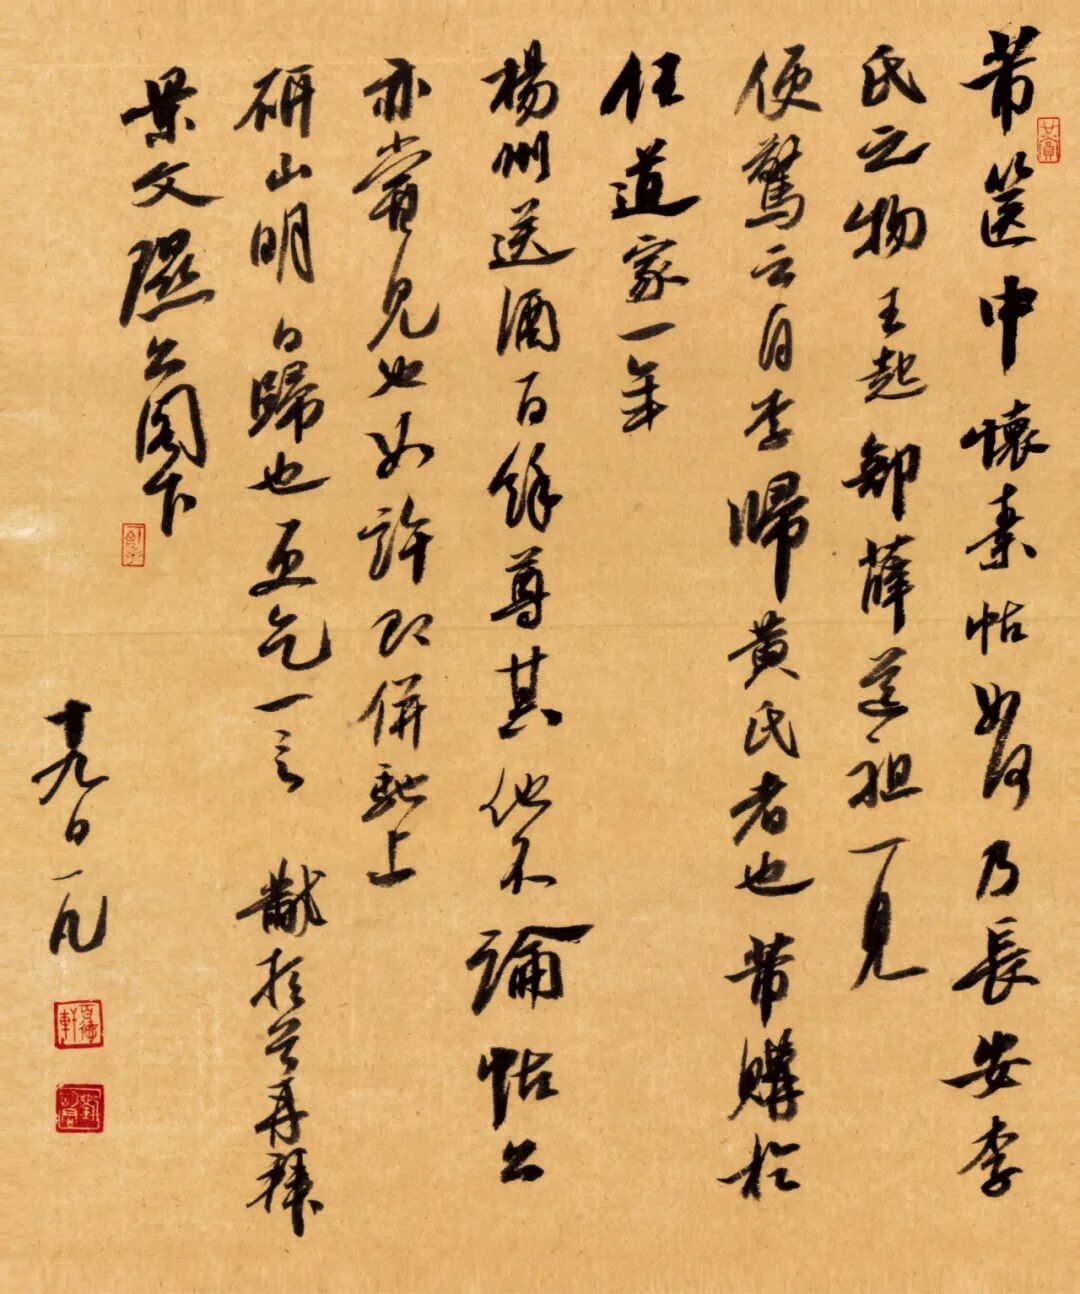 芾篋中懷素帖如何乃長安李
氏之物王起部薛道祖一見
便驚云自李歸黃氏者也芾購於
任道家一年
楊州送酒百餘尊其他不論帖公
亦嘗見也如許即併馳上
研山明日歸也更乞一言 黻頓首再拜
景文隰公閤下
十九日一凡